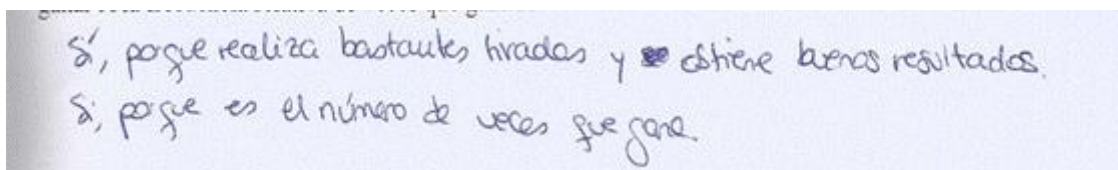 Sí, porque realiza bastantes tiradas y obtiene buenos resultados.
Si, porque es el número de veces que gana.